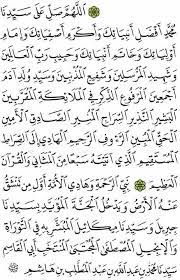 اَللّٰهُمَّ صَلِّ عَلَى سَيِّدِنَا
مُحَمَّدٍ أَفْضَلِ أَنْبِيَائِكَ وَأَكْرَمِ أَصْفِيَائِكَ وَإِمَامِ
أَوْلِيَائِكَ وَخَاتَمِ أَنْبِيَائِكَ وَحَبِيبِ رَبِّ الْعَالَمِينَ
وَشَهِيدِ الْمُرْسَلِينَ وَشَفِيعِ الْمُذْنِبِينَ وَسَيِّدِ وَلَدِ آدَمَ
أَجْمَعِينَ الْمَرْفُوعِ الذِّكْرِ فِي الْمَلَائِكَةِ الْمُقَرَّبِينَ
الْبَشِيرِ النَّذِيرِ السِّرَاجِ الْمُنِيرِ الصَّادِقِ الْأَمِينِ
الْحَقِّ الْمُبِينِ الرَّؤُوفِ الرَّحِيمِ الْهَادِي إِلَى الصِّرَاطِ
الْمُسْتَقِيمِ الَّذِي آتَيْتَهُ سَبْعًا مِنَ الْمَثَانِي وَالْقُرْآنَ
الْعَظِيمَ نَبِيِّ الرَّحْمَةِ وَهَادِي الْأُمَّةِ أَوَّلِ مَنْ تَنْشَقُّ
عَنْهُ الْأَرْضُ وَيَدْخُلُ الْجَنَّةَ الْمُؤَيَّدِ بِسَيِّدِنَا
جِبْرِيلَ وَسَيِّدِنَا مِيكَائِيلَ الْمُبَشَّرِ بِهِ فِي التَّوْرَاةِ
وَالْإِنْجِيلِ الْمُصْطَفَى الْمُجْتَبَى الْمُنْتَخَبِ أَبِي الْقَاسِمِ
سَيِّدِنَا مُحَمَّدِ بْنِ عَبْدِ اللهِ بْنِ عَبْدِ الْمُطَّلِبِ بْنِ هَاشِمٍ